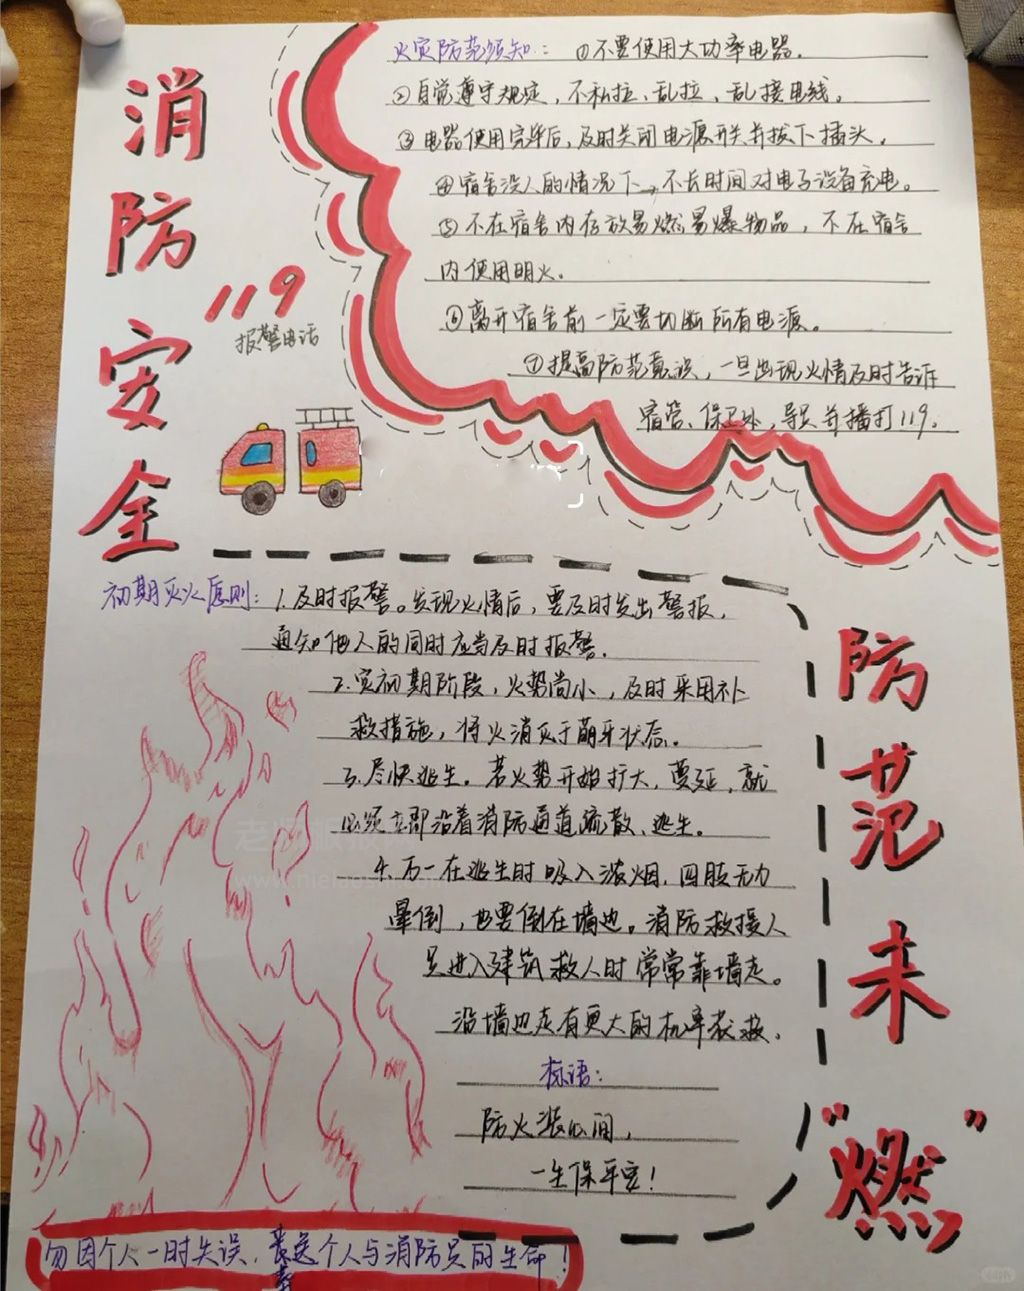 消防安全
119
报警电话
火灾防范须知：①不要使用大功率电器.
②自觉遵守规定，不私拉、乱拉、乱接电线。
③电器使用完毕后,及时关闭电源开关并拔下插头。
④宿舍没人的情况下，不长时间对电子设备充电。
⑤不在宿舍内存放易燃易爆物品，不在宿舍
内使用明火.
⑥离开宿舍前一定要切断所有电源。
⑦提高防范意识，一旦出现火情及时告诉
宿管、保卫处，导员并播打119.
初期灭火原则：1.及时报警。发现火情后，要及时发出警报，
通知他人的同时应当及时报警.
2.灾初期阶段，火势尚小，及时采用补
救措施，将火消灭于萌牙状态。
3.尽快逃生。若火势开始扩大，蔓延，就
必须立即沿着消防通道疏散、逃生。
4.万一在逃生时吸入浓烟，四肢无力
晕倒，也要倒在墙边。消防救援人
员进入建筑救人时常常靠墙走。
沿墙边走有更大的机率获救.
标语：
防火装心间，
一生保平安！
防范未
“燃”
勿因个人一时失误，丧送个人与消防员的生命！
老师板报网